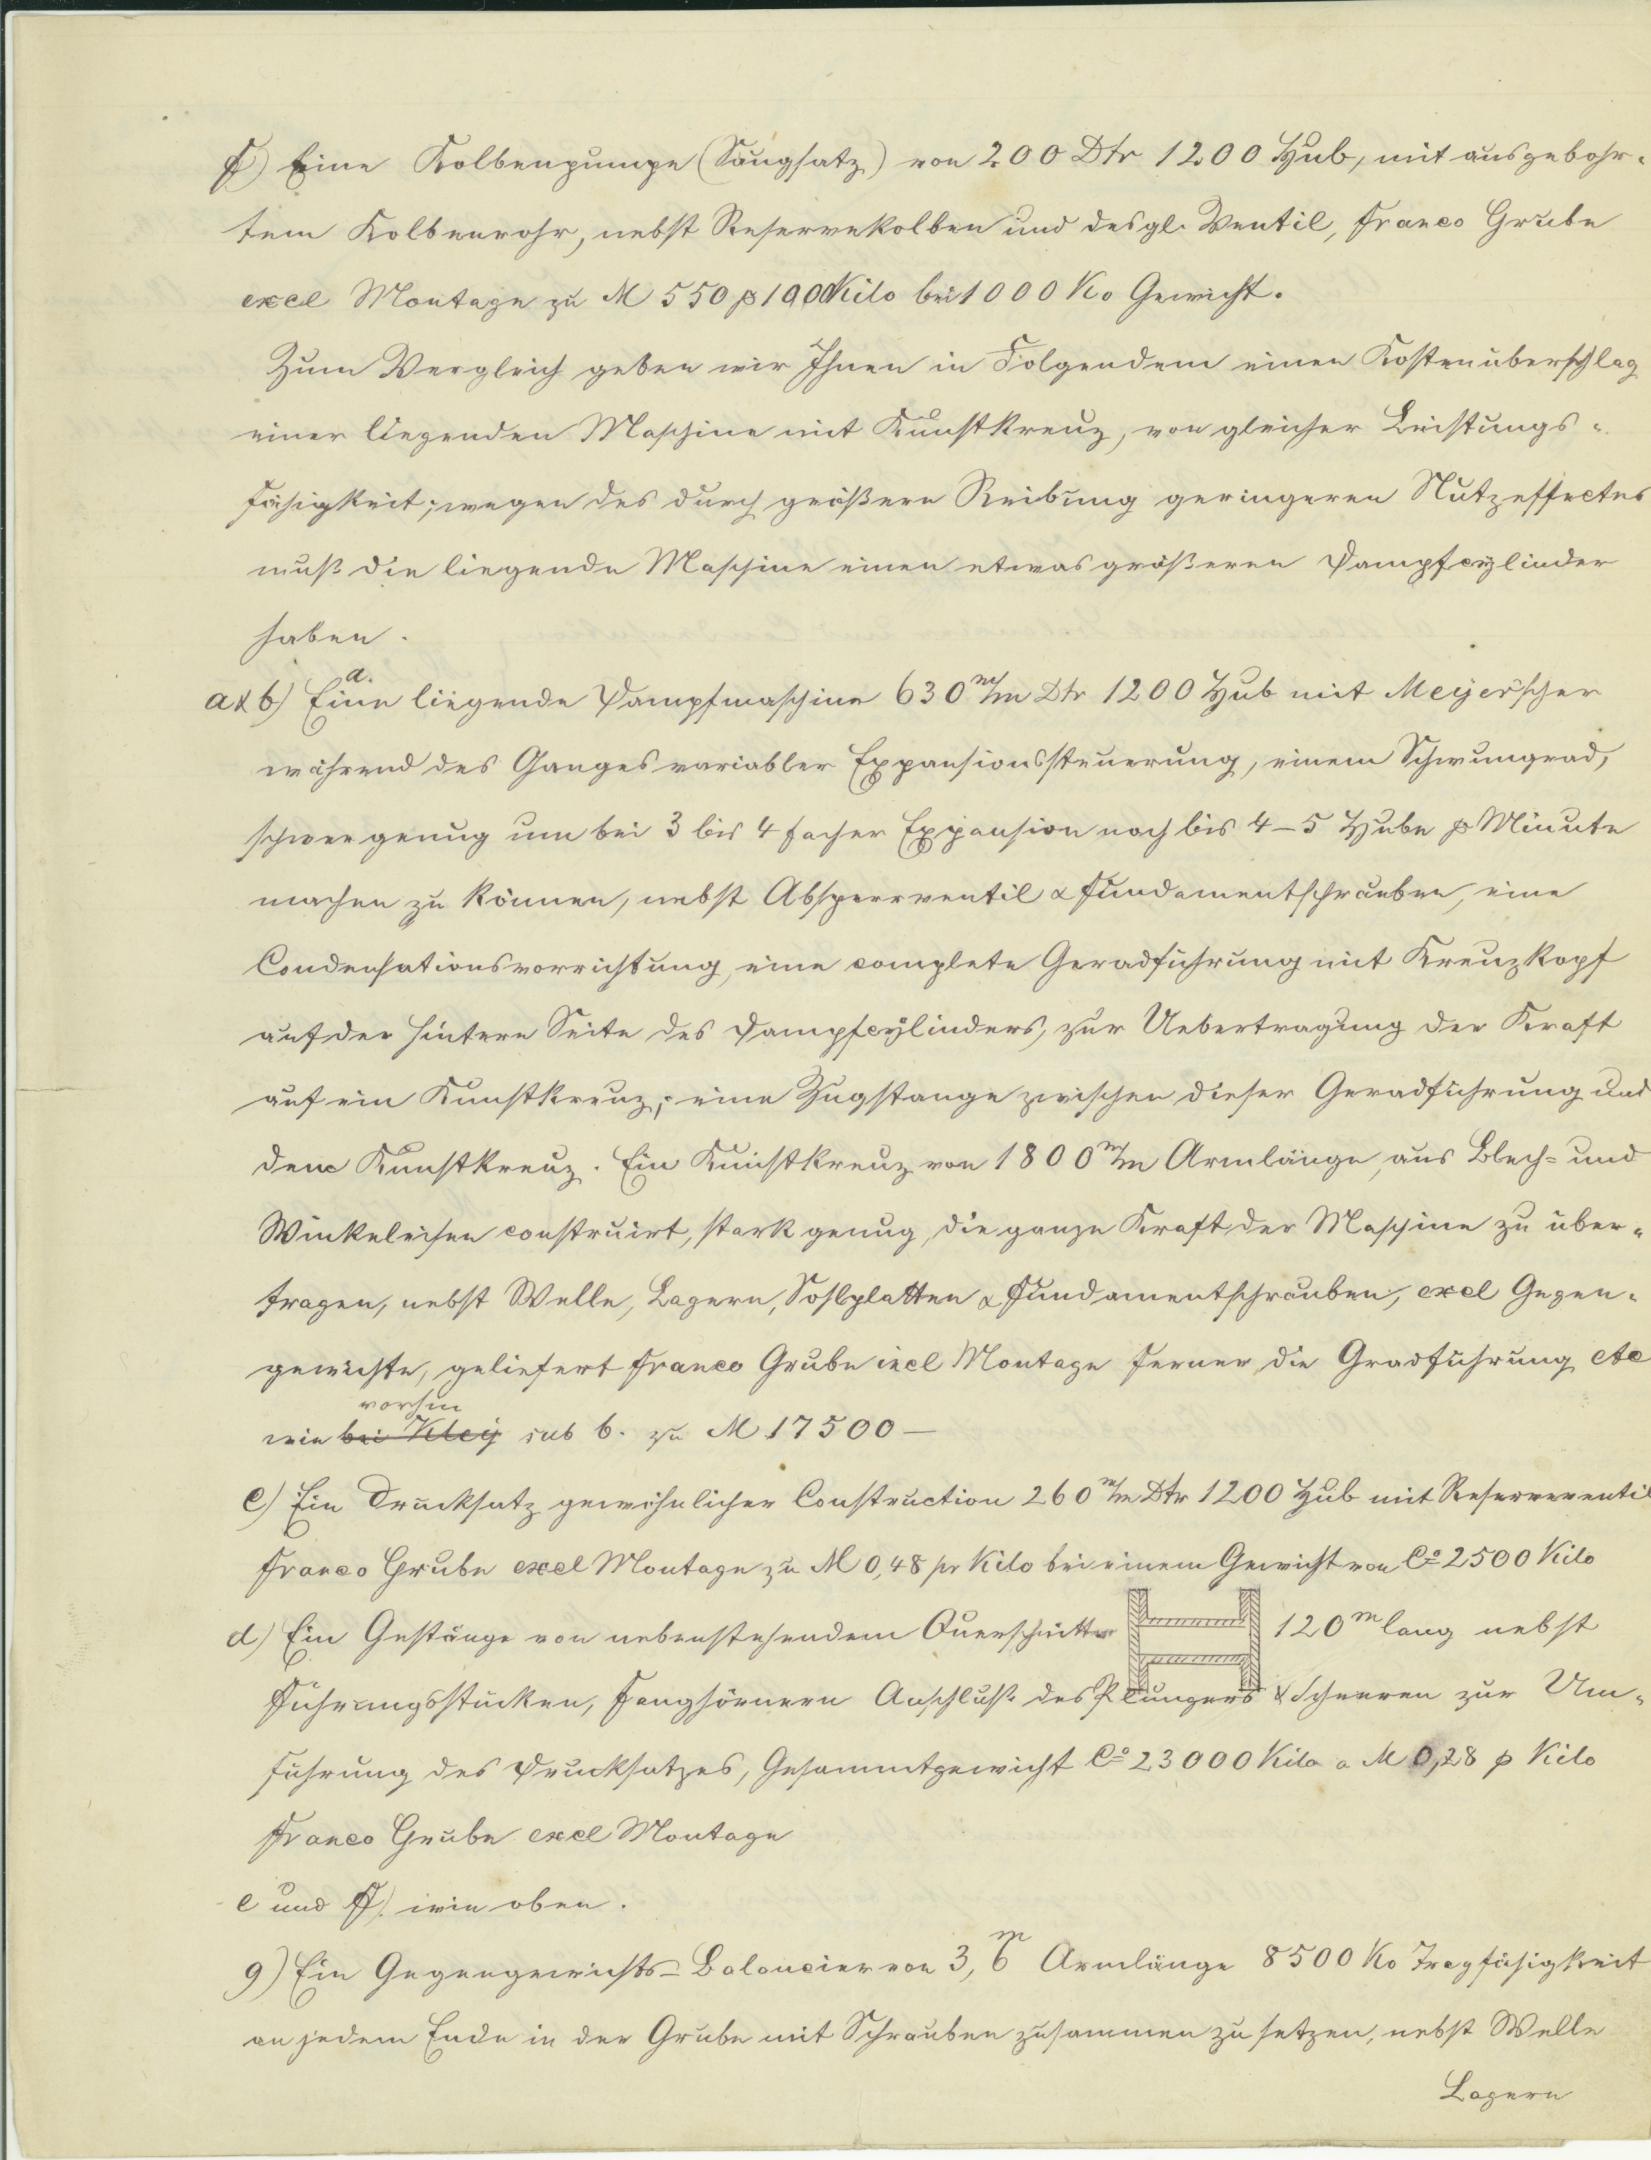 f) Eine Kolbenpumpe (Saugsatz) von 200 Dtr 1200 Hub, mit ausgebohr-
tem Kolbenrohr, nebst Reservekolben und desgl. Ventil, franco Grube
excl Montage zu M 550 p 1000 Kilo bei 1000 Ko Gewicht.
Zum Vergleich geben wir Ihnen in Folgendem einen Kostenüberschlag
einer liegenden Maschine mit Kunstkreuz, von gleicher Leistungs-
fähigkeit; wegen des durch größere Reibung geringeren Nutzeffectes
muß die liegende Maschine einen etwas größeren Dampfcylinder
haben.
a.
a & b) Eine liegende Dampfmaschine 630 m/m Dtr 1200 Hub mit Meyer'scher
während des Ganges variabler Expansionssteuerung, einem Schwungrad,
schwer genug um bei 3 bis 4 facher Expansion noch bis 4–5 Hube p Minute
machen zu können, nebst Absperrventil & Fundamentschrauben, eine
Condensationsvorrichtung, eine complete Geradführung mit Kreuzkopf
auf der hintere Seite des Dampfcylinders, zur Uebertragung der Kraft
auf ein Kunstkreuz; eine Zugstange zwischen dieser Geradführung und
dem Kunstkreuz. Ein Kunstkreuz von 1800 m/m Armlänge, aus Blech- und
Winkeleisen construirt, stark genug, die ganze Kraft der Maschine zu über-
tragen, nebst Welle, Lagern, Sohlplatten & Fundamentschrauben, excl Gegen-
gewichte, geliefert franco Grube incl Montage ferner die Gradführung etc
vorhin
wie bei Kley sub b. zu M 17500 –
c) Ein Drucksatz gewöhnlicher Construction 260 m/m Dtr 1200 Hub mit Reserveventil
franco Grube excl Montage zu M 0,48 pr Kilo bei einem Gewicht von Ca 2500 Kilo
d) Ein Gestänge von nebenstehendem Querschnitte 120 m lang nebst
Führungsstücken, Fanghörnern Anschluß des Plungers & Scheeren zur Um-
führung des Drucksatzes, Gesammtgewicht Ca 23000 Kilo a M 0,28 p Kilo
franco Grube excl Montage
e und f) wie oben.
g) Ein Gegengewichts-Balancier von 3,6 m Armlänge 8500 Ko Tragfähigkeit
an jedem Ende in der Grube mit Schrauben zusammen zu setzen, nebst Welle
Lagern